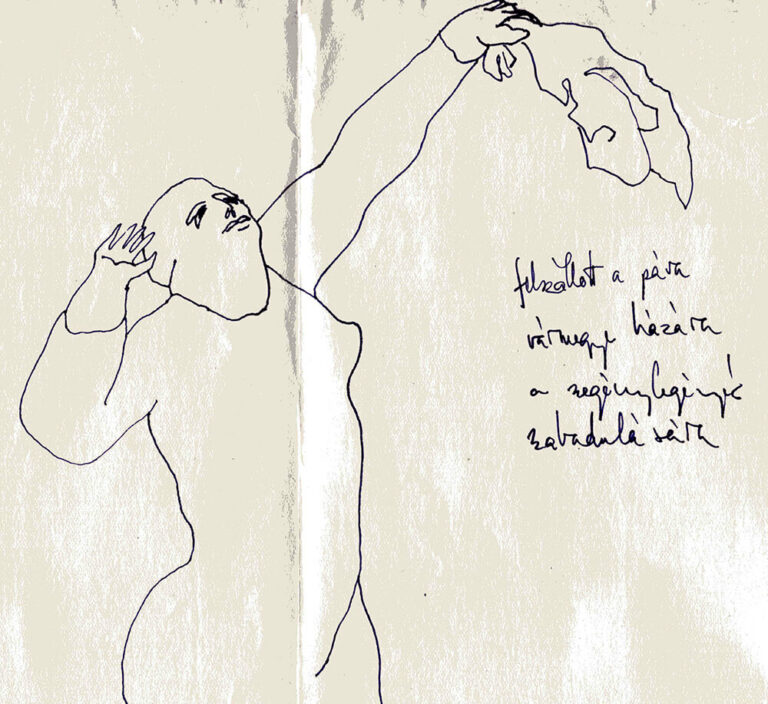 felszállott a páva
vármegye házára
a szegénylegények
szabadulására